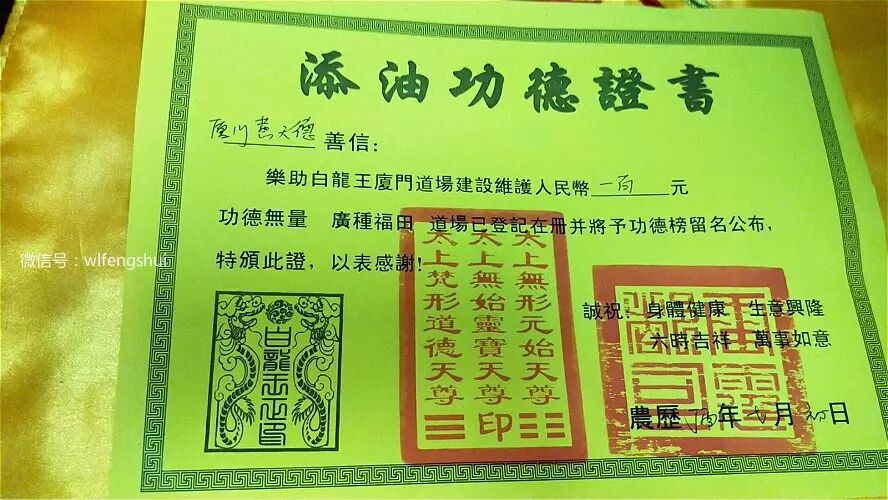 添油功德證書
善信：
樂助白龍王廈門道場建設維護人民幣一百元
功德無量 廣種福田 道場已登記在冊并將予功德榜留名公布，
特頒此證，以表感謝！
微信号：wlfengshui
太上無形元始天尊
太上無始靈寶天尊
太上梵形道德天尊
印
誠祝：身體健康 生意興隆
六時吉祥 萬事如意
農歷 年 月 日